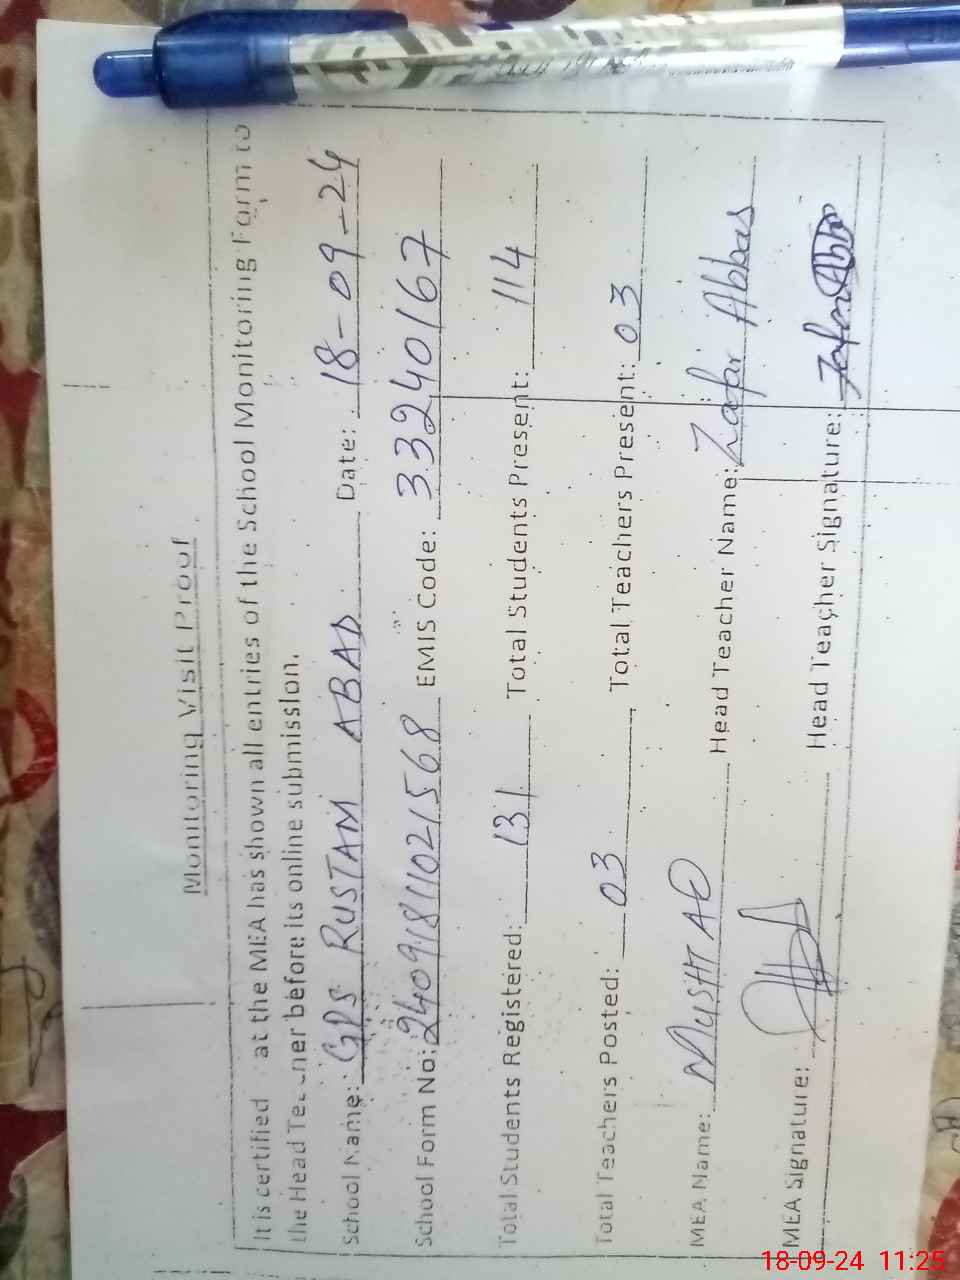 Monitoring Visit Proof
It is certified at the MEA has shown all entries of the School Monitoring Form to
the Head Te ner before its online submission.
School Name: GPS RUSTAM ABAD Date: 18-09-24
School Form No: 24091811021568 EMIS Code: 33240167
Total Students Registered: 131 Total Students Present: 114
Total Teachers Posted: 03 Total Teachers Present: 03
MEA Name: MUSHTAQ Head Teacher Name: Zafar Abbas
MEA Signature: Head Teacher Signature: Zafar Abbas
18-09-24 11:25